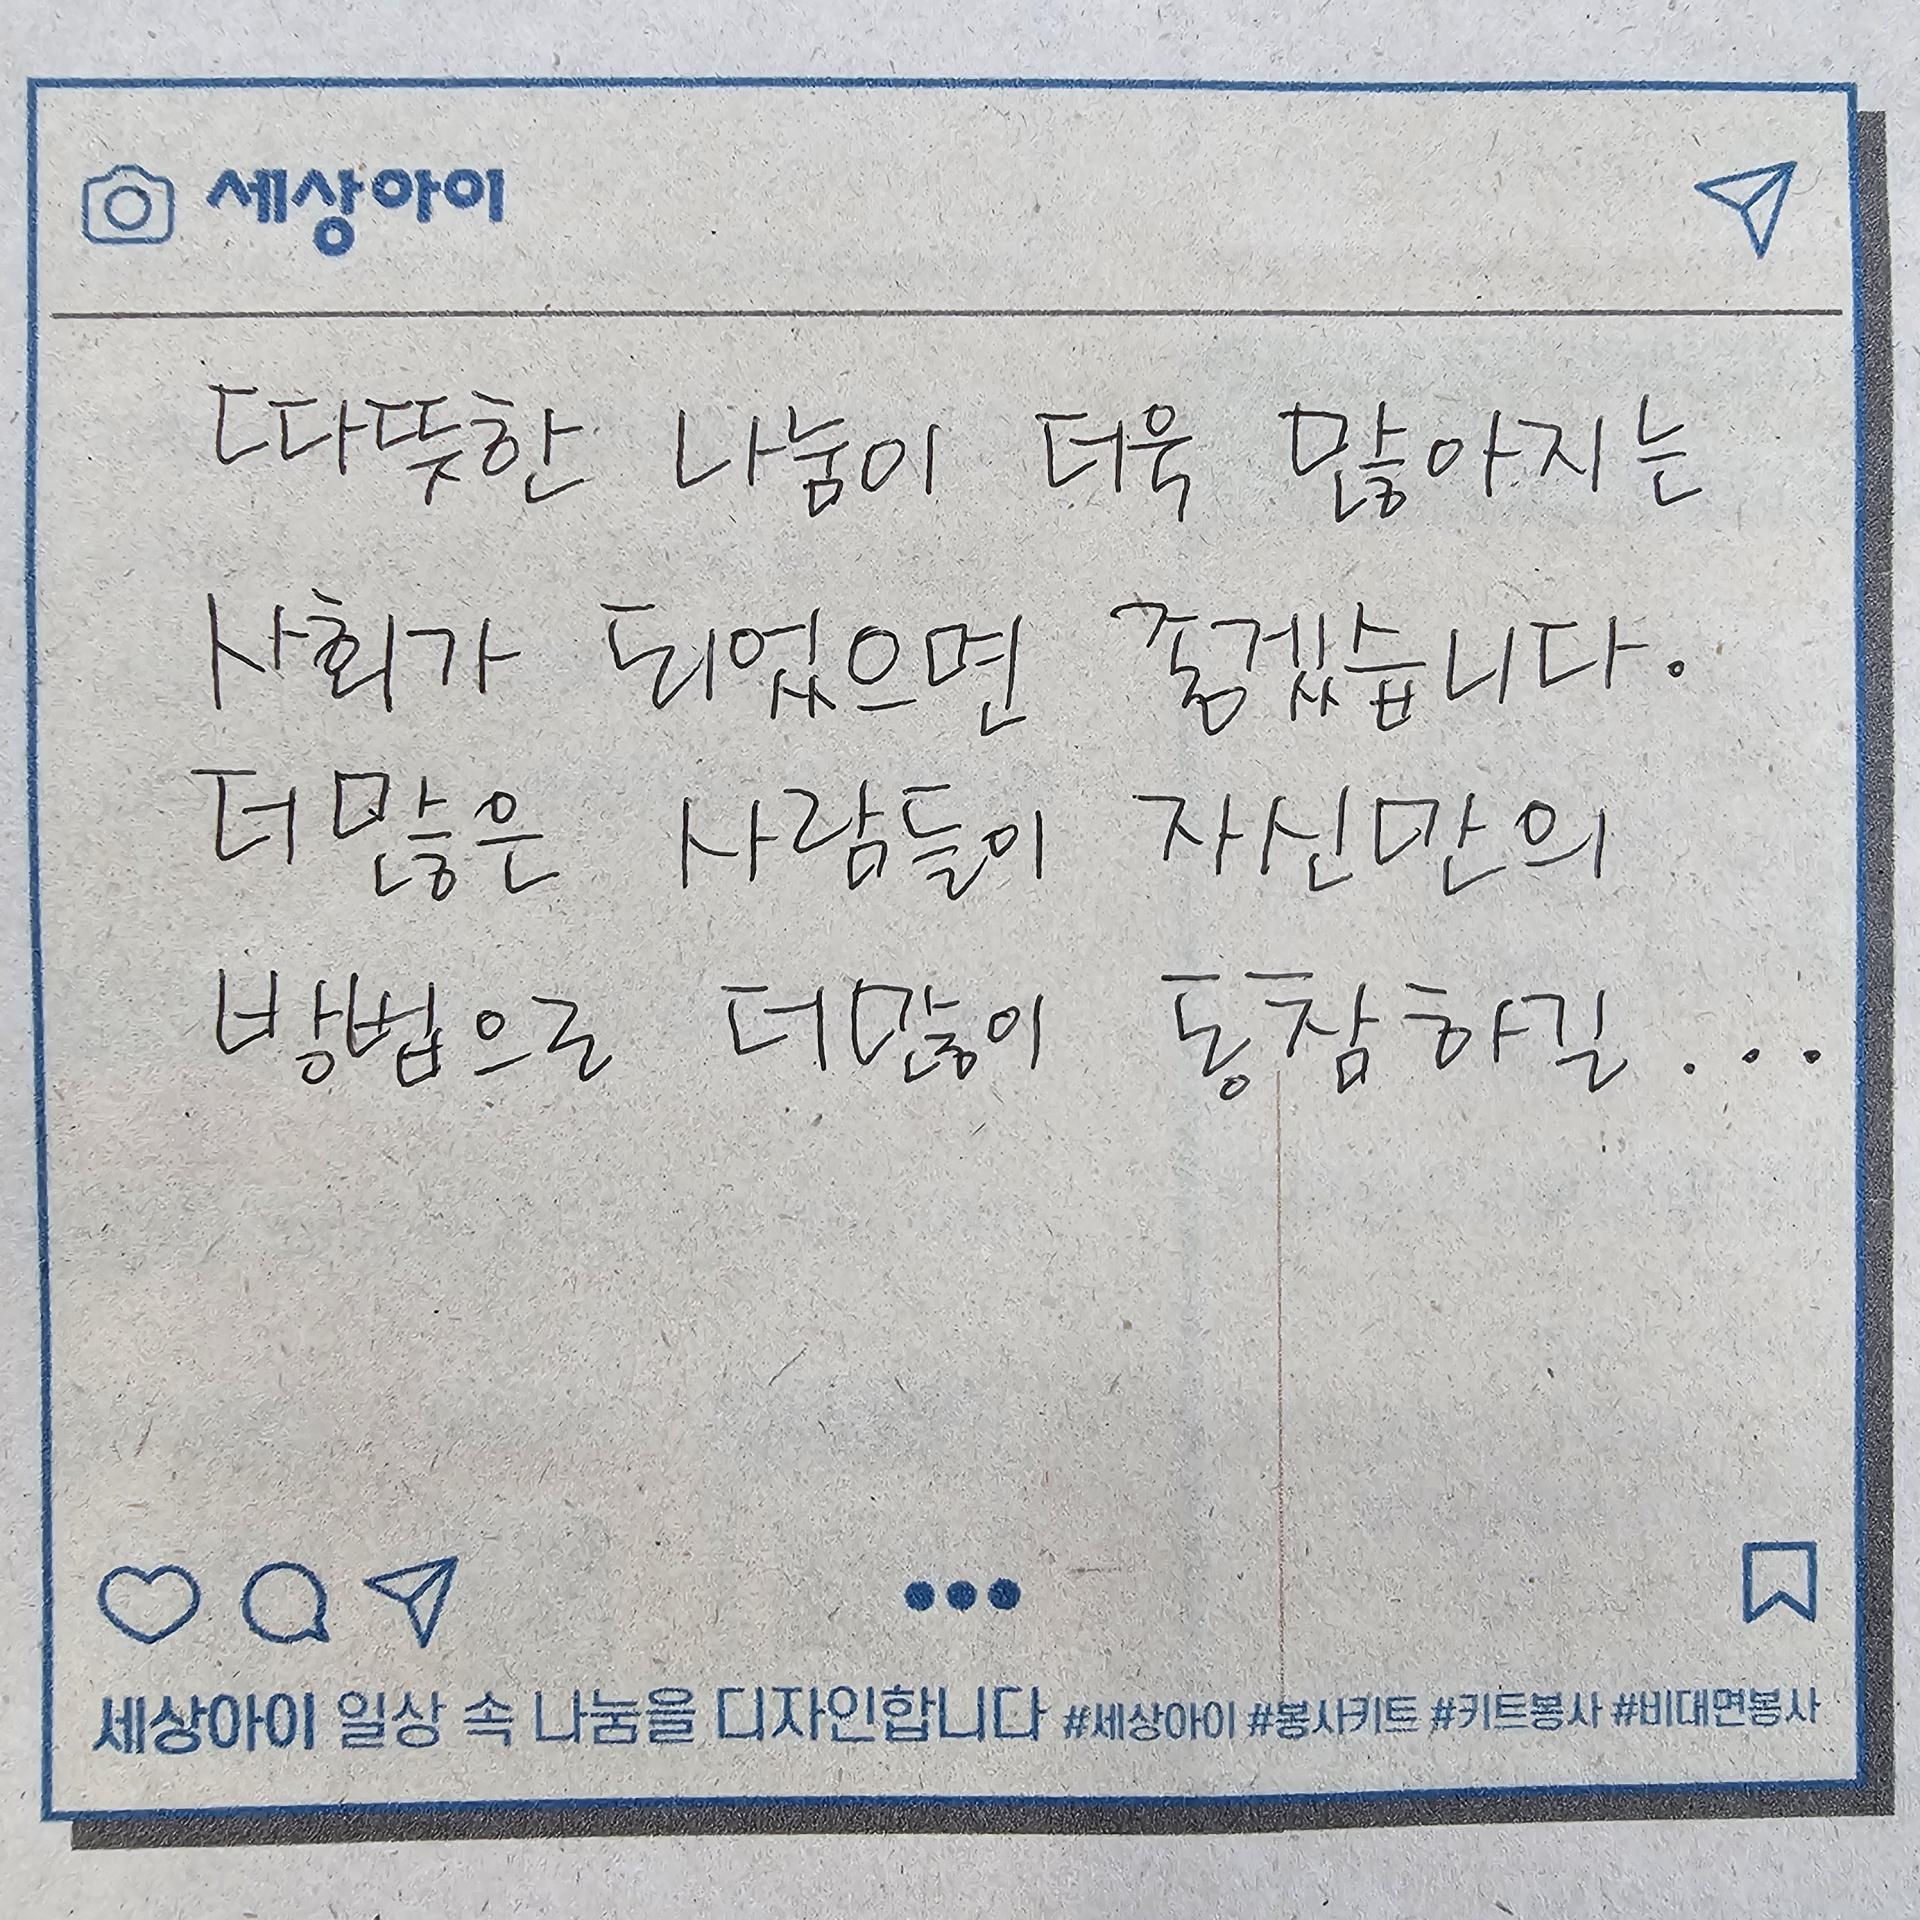 세상아이
따뜻한 나눔이 더욱 많아지는
사회가 되었으면 좋겠습니다.
더 많은 사람들이 자신만의
방법으로 더많이 동참하길...
세상아이 일상 속 나눔을 디자인합니다 #세상아이 #봉사키트 #키트봉사 #비대면봉사